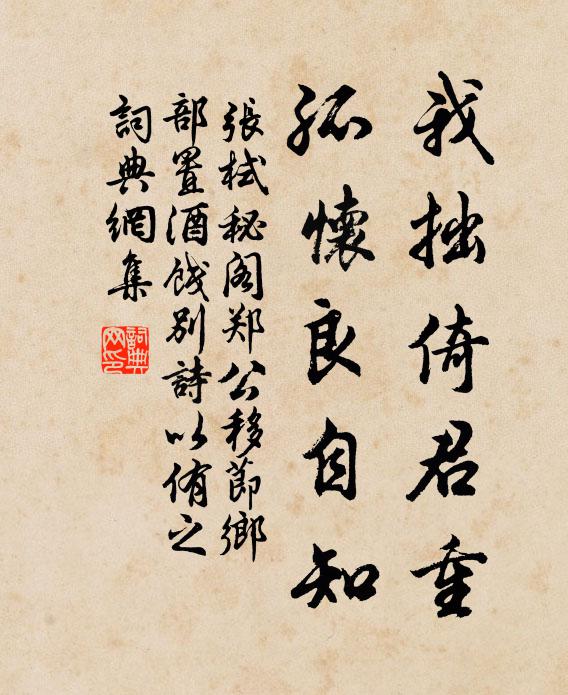 我拙倚君重
孤懷良自知
張栻秘阁郑公移節鄉
部置酒餞别詩以侑之
詞典網集
詞典网印